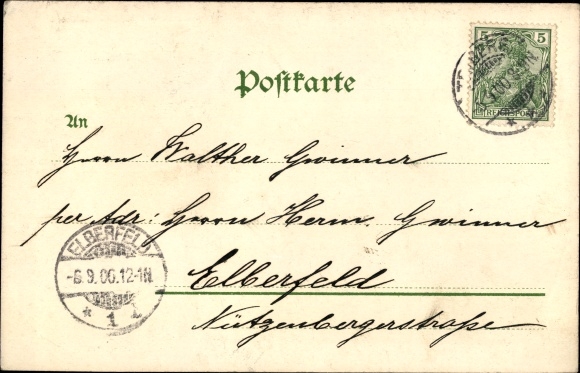 5 5
REICHSPOST
Postkarte
An
Herrn Walther Gwinner
per Adr: Herrn Herm. Gwinner
Elberfeld
Nützenbergerstraße
ELBERFELD
-6.9.00.12-1N.
* 1 1